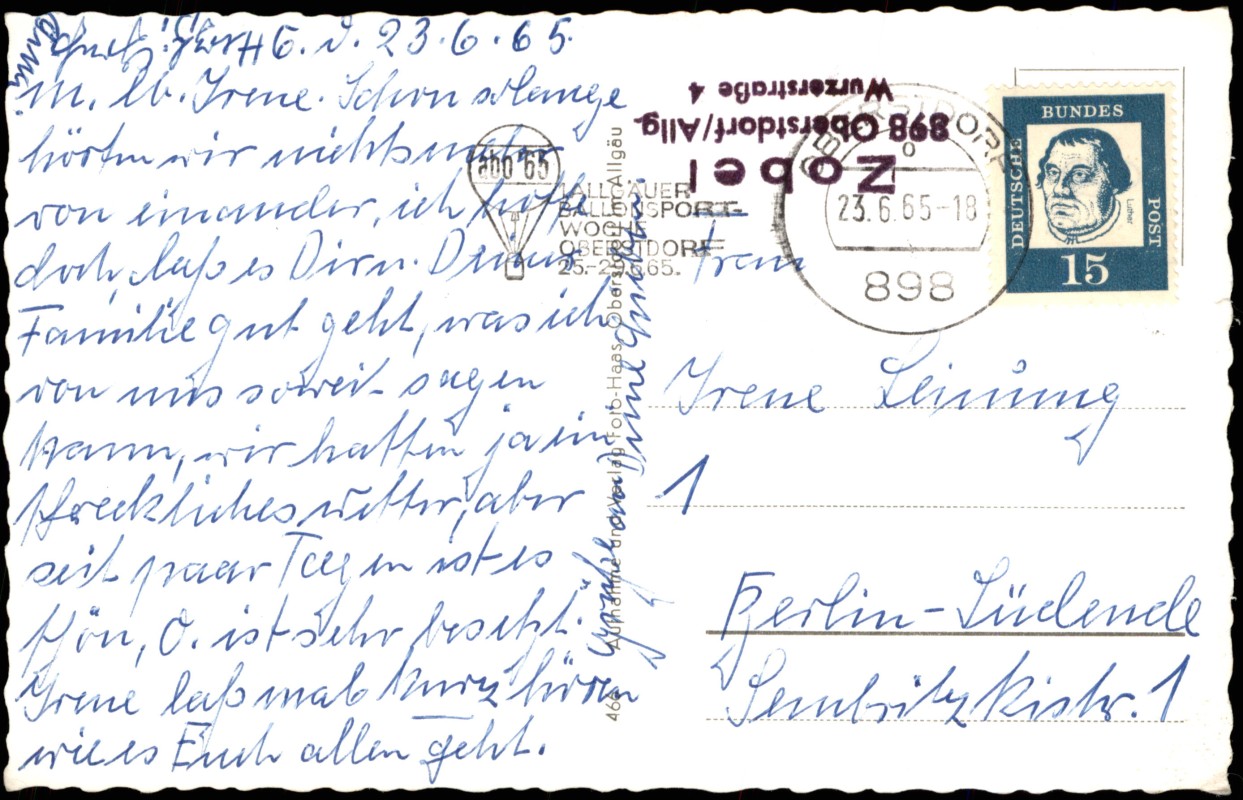 23.6.65.
m. lb. Irene. Schon solange
hörten wir nichts mehr
von einander, ich hoffe
doch, daß es Dir u. Deiner
Familie gut geht, was ich
von uns soweit sagen
kann, wir hatten ja ein
schreckliches wetter, aber
seit paar Tagen ist es
schön, O. ist sehr besetzt.
Irene laß mal kurz hören
wie es Euch allen geht.
Grüße an Deine
468 Aufnahme und Verlag Foto-Haas, Oberstdorf/Allgäu
Zobel
898 Oberstdorf/Allg.
Wurzerstraße 4
abo 65
1.ALLGÄUER
BALLONSPORT-
WOCHE
OBERSTDORF
65.
OBERSTDORF
23.6.65-18
898
DEUTSCHE
BUNDES
POST
Luther
15
Frau
Irene Leinung
1
Berlin-Südende
Sembritzkistr. 1